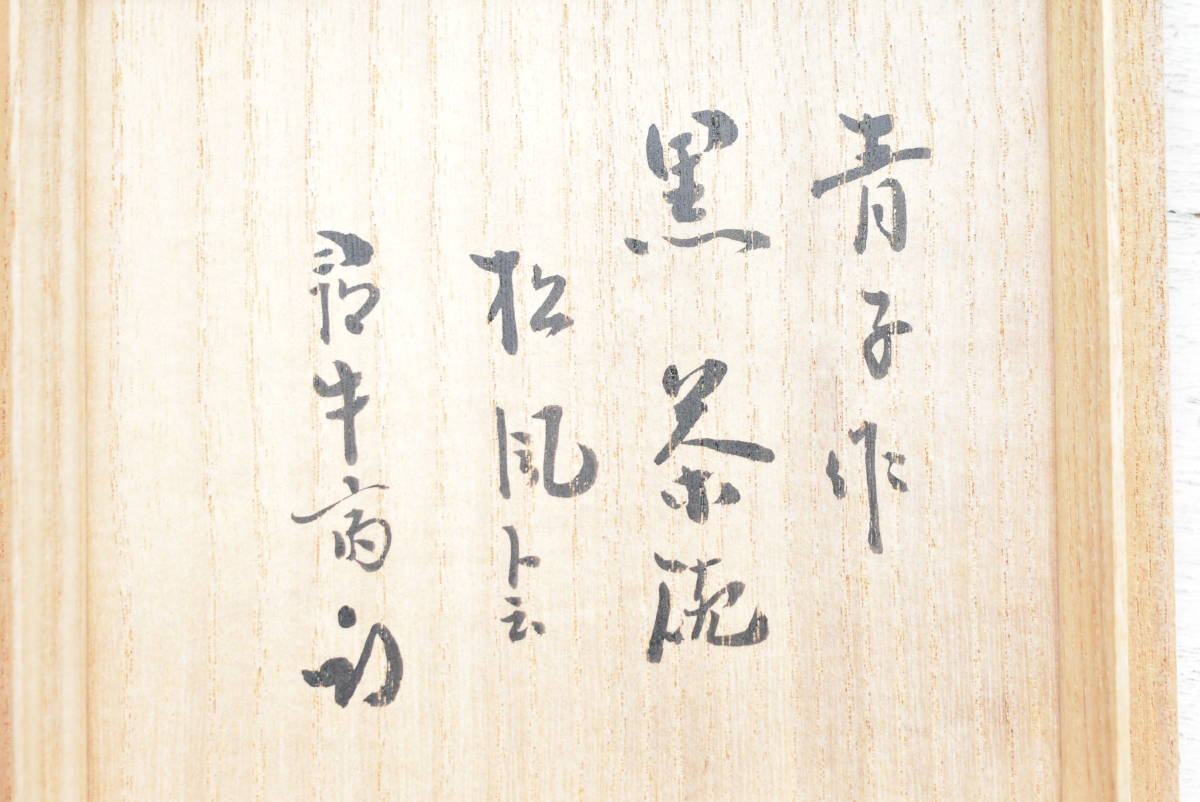 青子作
黒茶碗
松風ト云
尋牛斎